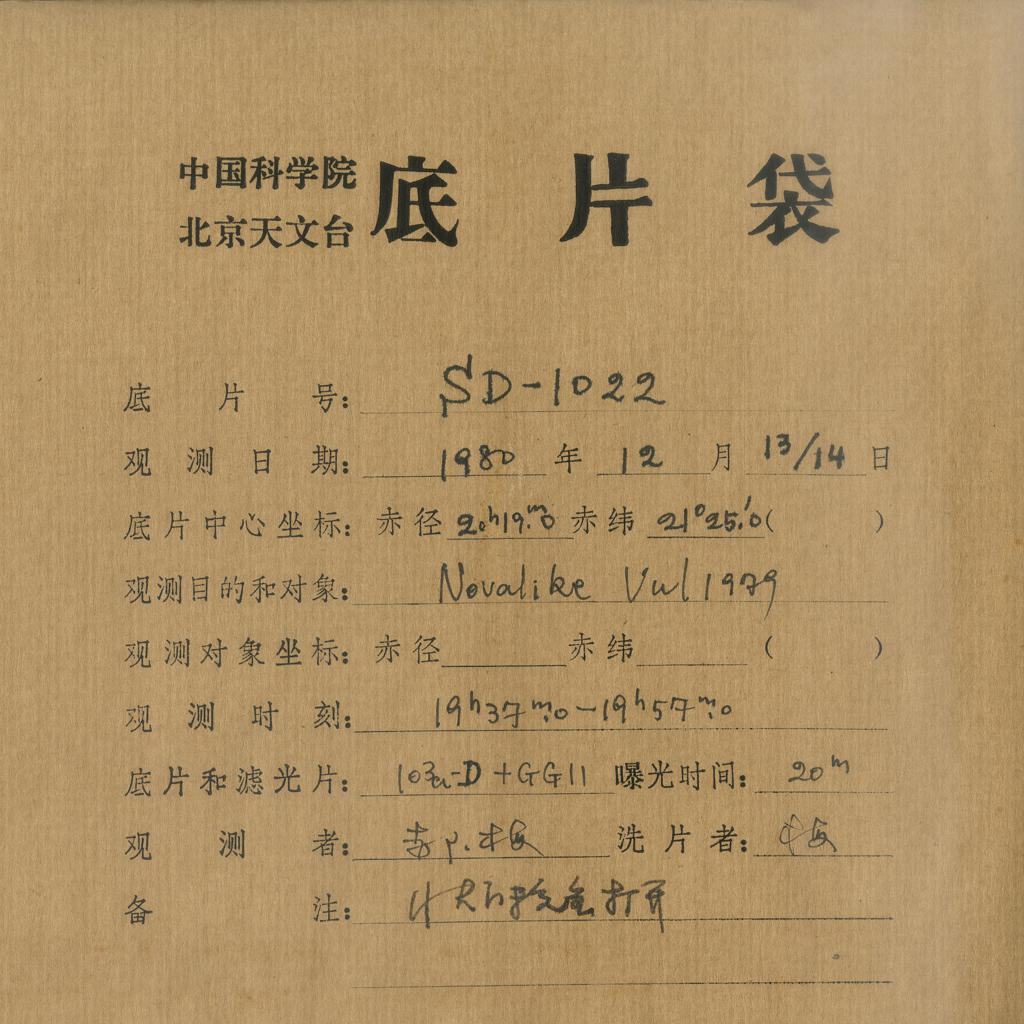 中国科学院
北京天文台
底片袋
底片号: SD-1022
观测日期: 1980年12月13/14日
底片中心坐标: 赤径 20ʰ19ᵐ.0 赤纬 21°25′.0( )
观测目的和对象: Novalike Vul 1979
观测对象坐标: 赤径 赤纬 ( )
观测时刻: 19ʰ37ᵐ.0-19ʰ57ᵐ.0
底片和滤光片: 103a-D+GG11 曝光时间: 20ᵐ
观测者: 梅 洗片者: 梅
备注: 打开